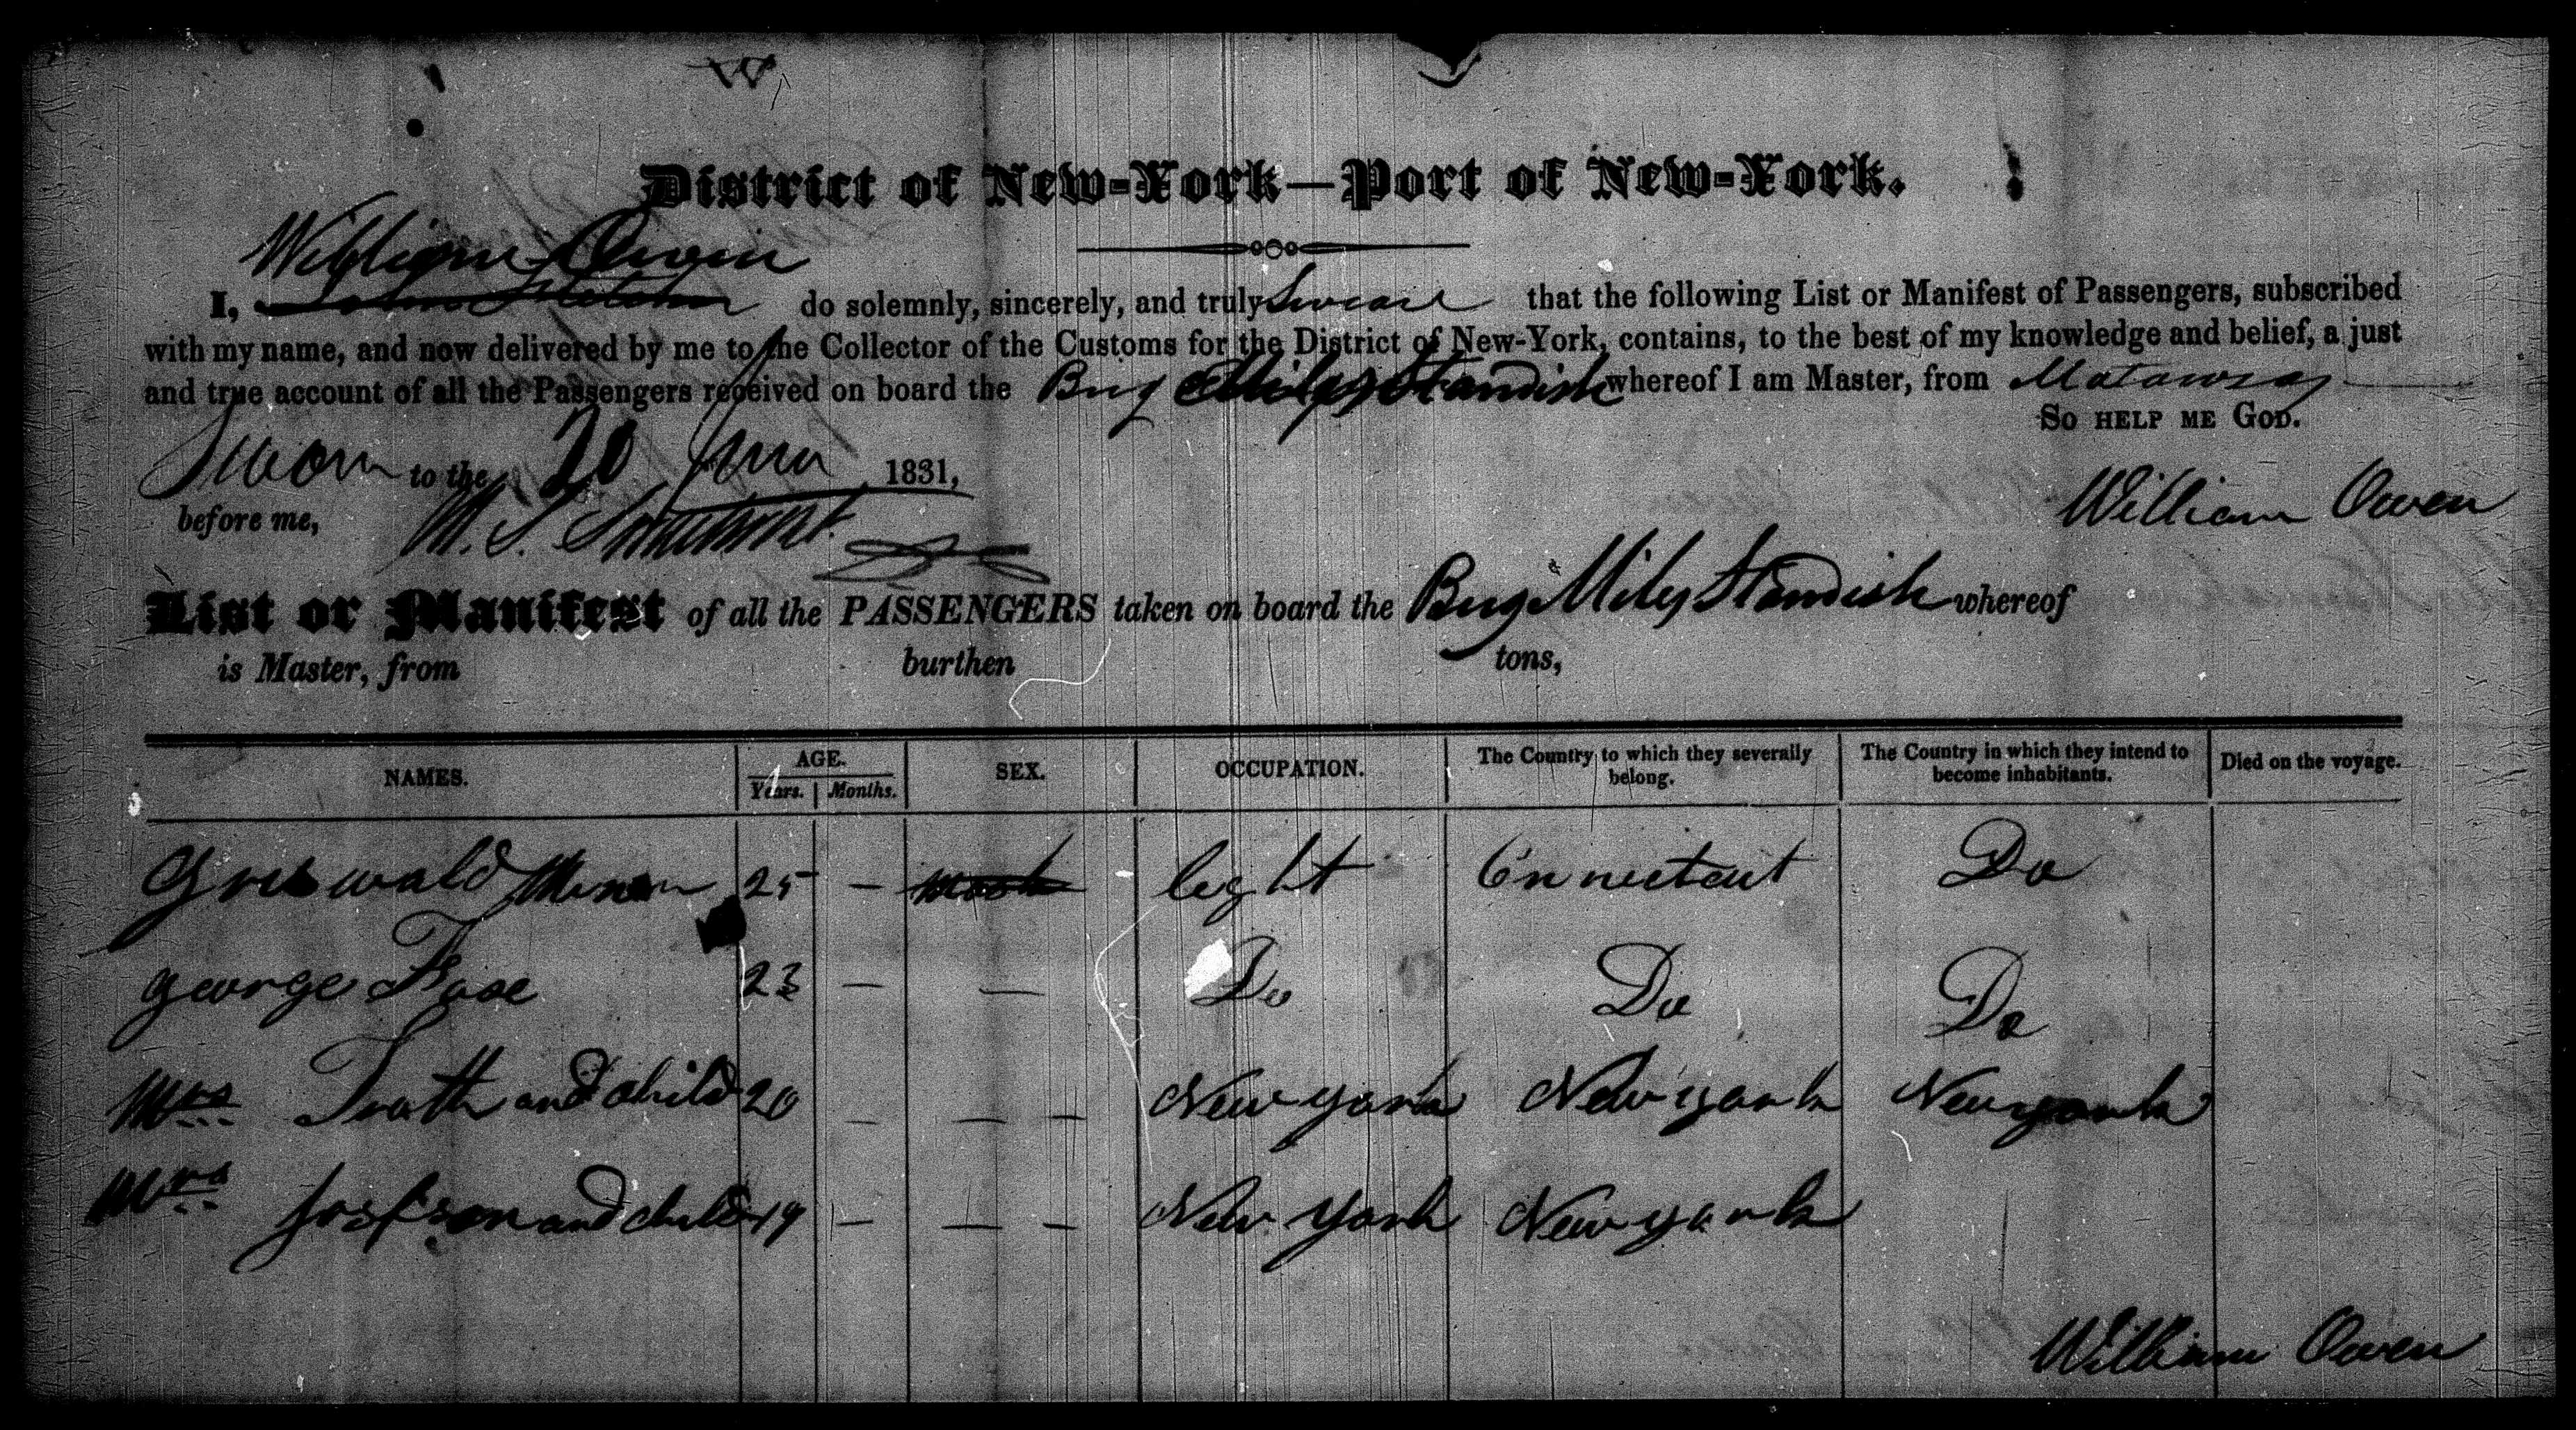 W
District of New-York—Port of New-York.
William Owen
I, do solemnly, sincerely, and truly Swear that the following List or Manifest of Passengers, subscribed
with my name, and now delivered by me to the Collector of the Customs for the District of New-York, contains, to the best of my knowledge and belief, a just
and true account of all the Passengers received on board the Brig Miles Standish whereof I am Master, from
So help me God.
Sworn to the 20 1831,
before me,
William Owen
List or Manifest of all the PASSENGERS taken on board the Brig Miles Standish whereof
is Master, from burthen tons,
NAMES. AGE. SEX. OCCUPATION. The Country to which they severally belong. The Country in which they intend to become inhabitants. Died on the voyage.
Years. Months.
Griswald 25 — light Do
George 23 — — Do Do Do
Mrs and Child 20 — — — New york New york New york
Mrs and child 19 — — — New York New york
William Owen